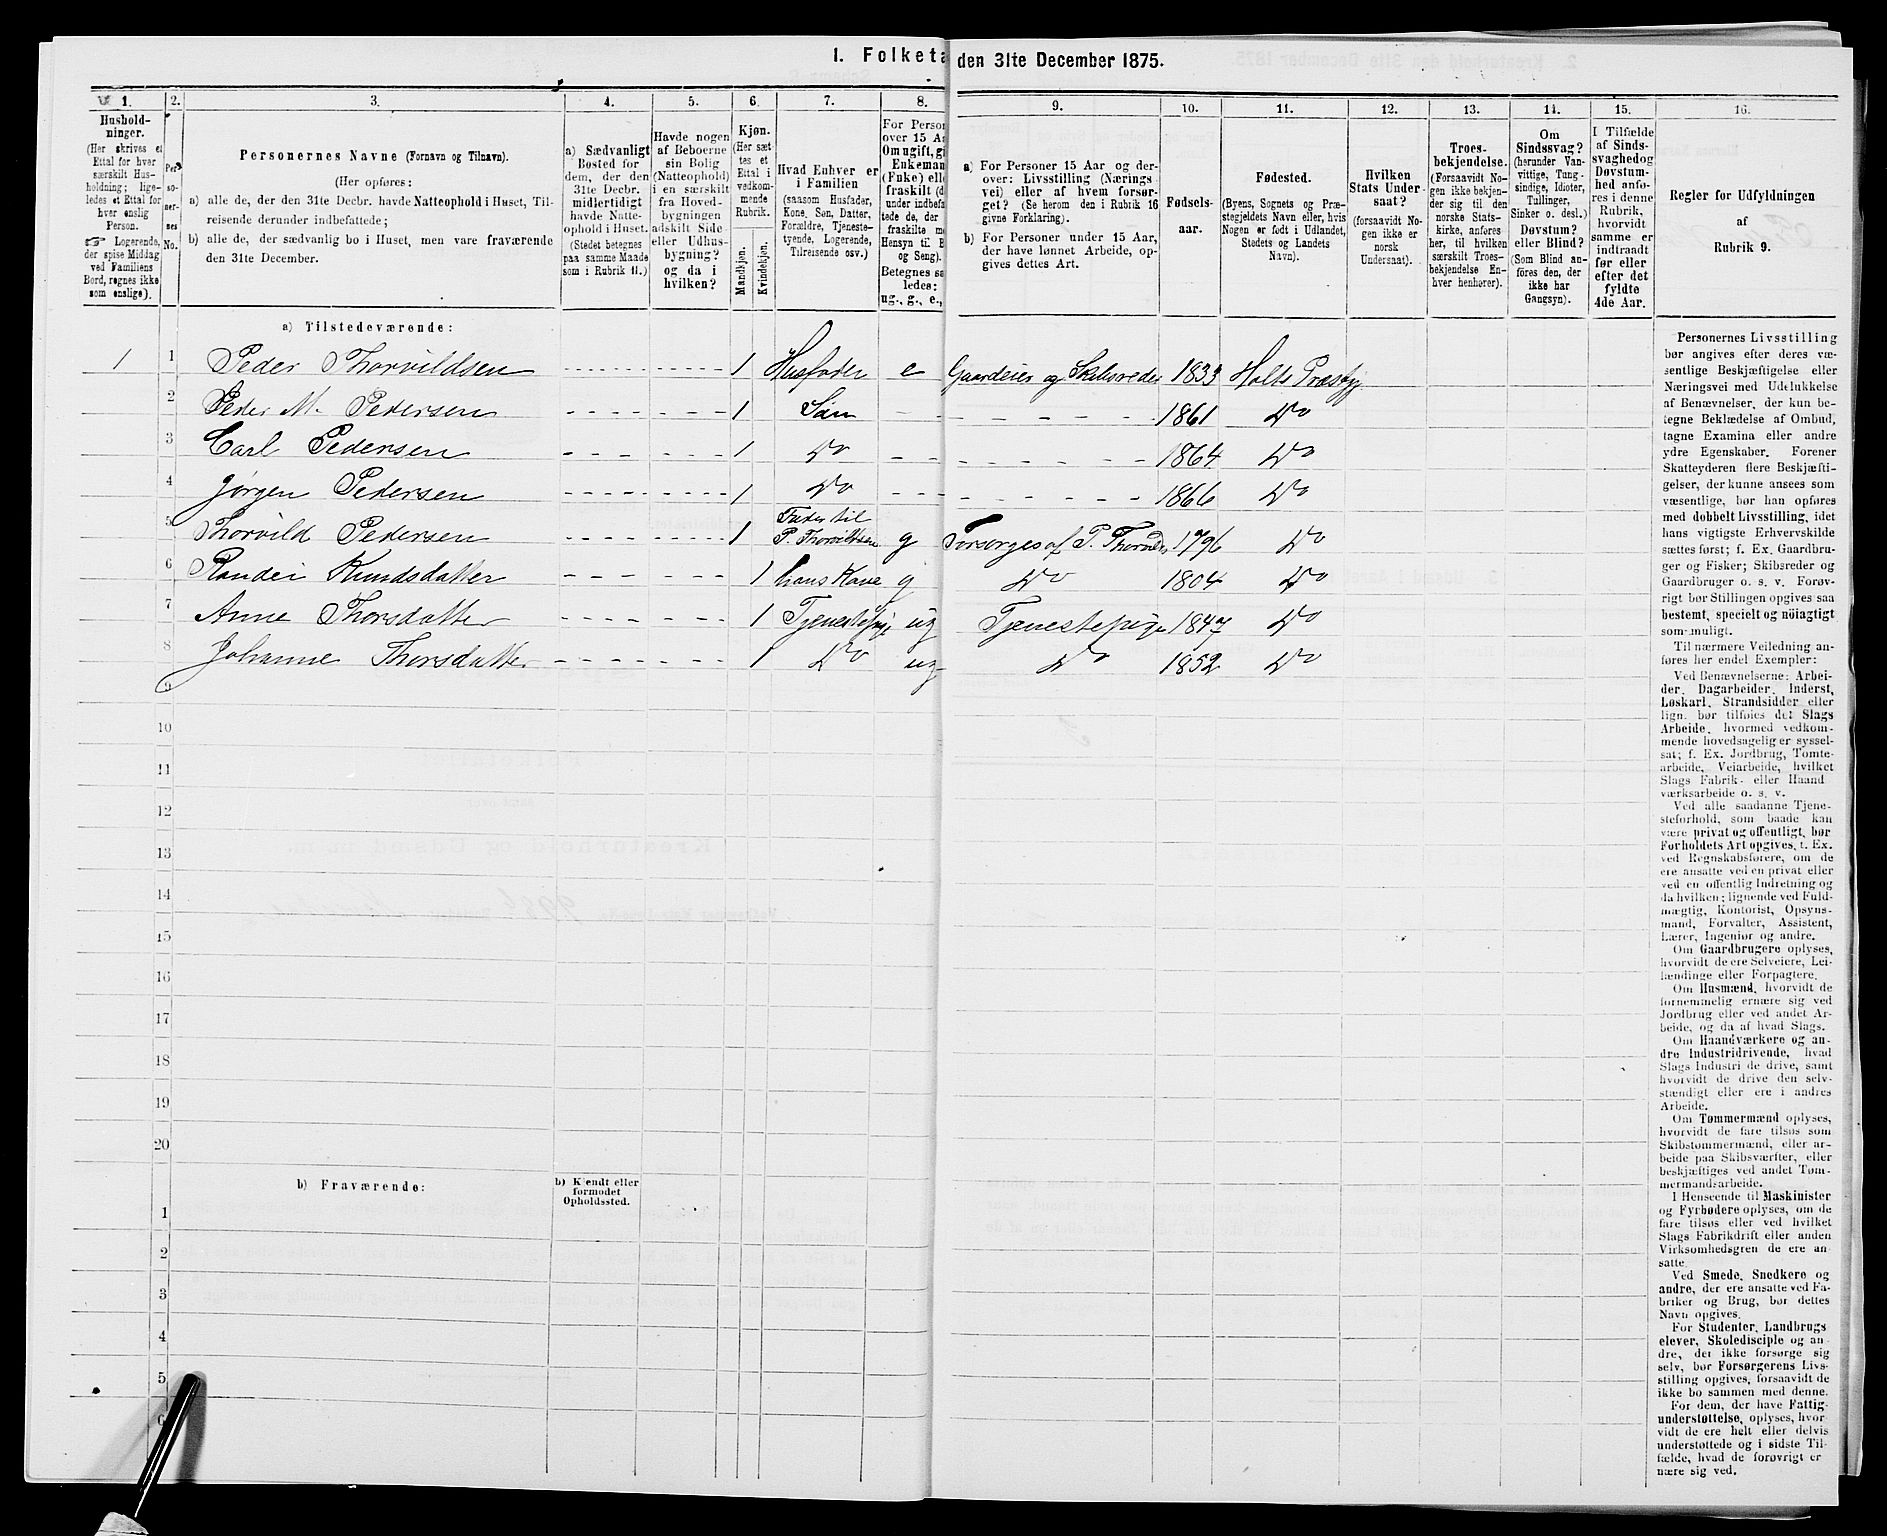 I. Folketæ den 31te December 1875.
1. 2. 3. 4. 5. 6. 7. 8. 9. 10. 11. 12. 13. 14. 15. 16.
Hushold-
ninger.
(Her skrives et
Ettal for hver
særskilt Hus-
holdning; lige-
ledes et Ettal for
hver enslig
Person.
☞ Logerende,
der spise Middag
ved Familiens
Bord, regnes ikke
som enslige).
Per-
so-
ner-
nes
No.
Personernes Navne (Fornavn og Tilnavn).
(Her opføres:
a) alle de, der den 31te Decbr. havde Natteophold i Huset, Til-
reisende derunder indbefattede;
b) alle de, der sædvanlig bo i Huset, men vare fraværende
den 31te December.
a) Sædvanligt
Bosted for
dem, der den
31te Decbr.
midlertidigt
havde Natte-
ophold i Huset.
(Stedet betegnes
paa samme Maade
som i Rubrik 11.)
Havde nogen
af Beboerne
sin Bolig
(Natteophold)
i en særskilt
fra Hoved-
bygningen
adskilt Side-
eller Udhus-
bygning?
og da i
hvilken?
Kjøn.
(Her sæt-
tes et
Ettal i
vedkom-
mende
Rubrik.
Mandkjøn.
Kvindekjøn.
Hvad Enhver er
i Familien
(saasom Husfader,
Kone, Søn, Datter,
Forældre, Tjeneste-
tyende, Logerende,
Tilreisende osv.)
For Person
over 15 Aa
Om ugift, gi
Enkemand
(Enke) elle
fraskilt (d
under indbefat
tede de, der e
fraskilte me
Hensyn til B
og Seng).
Betegnes saa
ledes:
ug., g., e.,
a) For Personer 15 Aar og der-
over: Livsstilling (Nærings-
vei) eller af hvem forsør-
get? (Se herom den i Rubrik 16
givne Forklaring).
b) For Personer under 15 Aar,
der have lønnet Arbeide, op-
gives dettes Art.
Fødsels-
aar.
Fødested.
(Byens, Sognets og Præ-
stegjeldets Navn eller, hvis
Nogen er født i Udlandet,
Stedets og Landets
Navn).
Hvilken
Stats Under-
saat?
(forsaavidt No-
gen ikke er
norsk
Undersaat).
Troes-
bekjendelse.
(Forsaavidt No-
gen ikke bekjen-
der sig til den
norske Stats-
kirke, anføres
her, til hvilken
særskilt Troes-
bekjendelse En-
hver henhører).
Om
Sindssvag?
(herunder Van-
vittige, Tung-
sindige, Idioter,
Tullinger,
Sinker o. desl.)
Døvstum?
eller Blind?
(Som Blind an-
føres den, der
ikke har
Gangsyn).
I Tilfælde
af Sinds-
svaghed og
Døvstum-
hed anfø-
res i denne
Rubrik,
hvorvidt
samme er
indtraadt
før eller
efter det
fyldte
4de Aar.
Regler for Udfyldningen
af
Rubrik 9.
a) Tilstedeværende:
1 1 Peder Thorvildsen 1 Husfader e Gaardeier og Skibsreder 1833 Holts Præstgj
2 Peder M. Pedersen 1 Søn 1861 Do
3 Carl Pedersen 1 Do 1864 Do
4 Jørgen Pedersen 1 Do 1866 Do
5 Thorvild Pedersen 1 Fader til P. Thorvildsen g Forsørges af P. Thorvilds 1796 Do
6 Randei Knudsdatter 1 hans Kone g Do 1804 Do
7 Anne Thorsdatter 1 Tjenestepige ug Tjenestepige 1847 Do
8 Johanne Thorsdatter 1 Do ug Do 1852 Do
9
10
11
12
13
14
15
16
17
18
19
20
b) Fraværende:
b) Kjendt eller
formodet
Opholdssted.
1
2
3
4
5
6
Personernes Livsstilling
bør angives efter deres væ-
sentlige Beskjæftigelse eller
Næringsvei med Udelukkelse
af Benævnelser, der kun be-
tegne Beklædelse af Ombud,
tagne Examina eller andre
ydre Egenskaber. Forener
Skatteyderen flere Beskjæfti-
gelser, der kunne ansees som
væsentlige, bør han opføres
med dobbelt Livsstilling, idet
hans vigtigste Erhvervskilde
sættes først; f. Ex. Gaardbru-
ger og Fisker; Skibsreder og
Gaardbruger o. s. v. Forøv-
rigt bør Stillingen opgives saa
bestemt, specielt og nøiagtigt
som muligt.
Til nærmere Veiledning an-
føres her endel Exempler:
Ved Benævnelserne: Arbei-
der, Dagarbeider, Inderst,
Løskarl, Strandsidder eller
lign. bør tilføies det Slags
Arbeide, hvormed vedkom-
mende hovedsagelig er syssel-
sat; f. Ex. Jordbrug, Tomte-
arbeide, Veiarbeide, hvilket
Slags Fabrik- eller Haand
værksarbeide o. s. v.
Ved alle saadanne Tjene-
steforhold, som baade kan
være privat og offentligt, bør
Forholdets Art opgives, t. Ex.
ved Regnskabsførere, om de
ere ansatte ved en privat eller
ved en offentlig Indretning og
da hvilken; lignende ved Fuld-
mægtig, Kontorist, Opsyns-
mand, Forvalter, Assistent,
Lærer, Ingeniør og andre.
Om Gaardbrugere oplyses,
hvorvidt de ere Selveiere, Lei-
lændinge eller Forpagtere.
Om Husmænd, hvorvidt de
fornemmelig ernære sig ved
Jordbrug eller ved andet Ar-
beide, og da af hvad Slags.
Om Haandværkere og an-
dre Industridrivende, hvad
Slags Industri de drive, samt
hvorvidt de drive den selv-
stændigt eller ere i andres
Arbeide.
Om Tømmermænd oplyses,
hvorvidt de fare tilsøs som
Skibstømmermænd, eller ar-
beide paa Skibsværfter, eller
beskjæftiges ved andet Tøm-
mermandsarbeide.
I Henseende til Maskinister
og Fyrbødere oplyses, om de
fare tilsøs eller ved hvilket
Slags Fabrikdrift eller anden
Virksomhedsgren de ere an-
satte.
Ved Smede, Snedkere og
andre, der ere ansatte ved Fa-
briker og Brug, bør dettes
Navn opgives.
For Studenter, Landbrugs
elever, Skoledisciple og an-
dre, der ikke forsørge sig
selv, bør Forsørgerens Livs-
stilling opgives, forsaavidt de
ikke bo sammen med denne.
For dem, der have Fattig-
understøttelse, oplyses, hvor-
vidt de ere helt eller delvis
understøttede og i sidste Til-
fælde, hvad de forøvrigt er
nære sig ved.